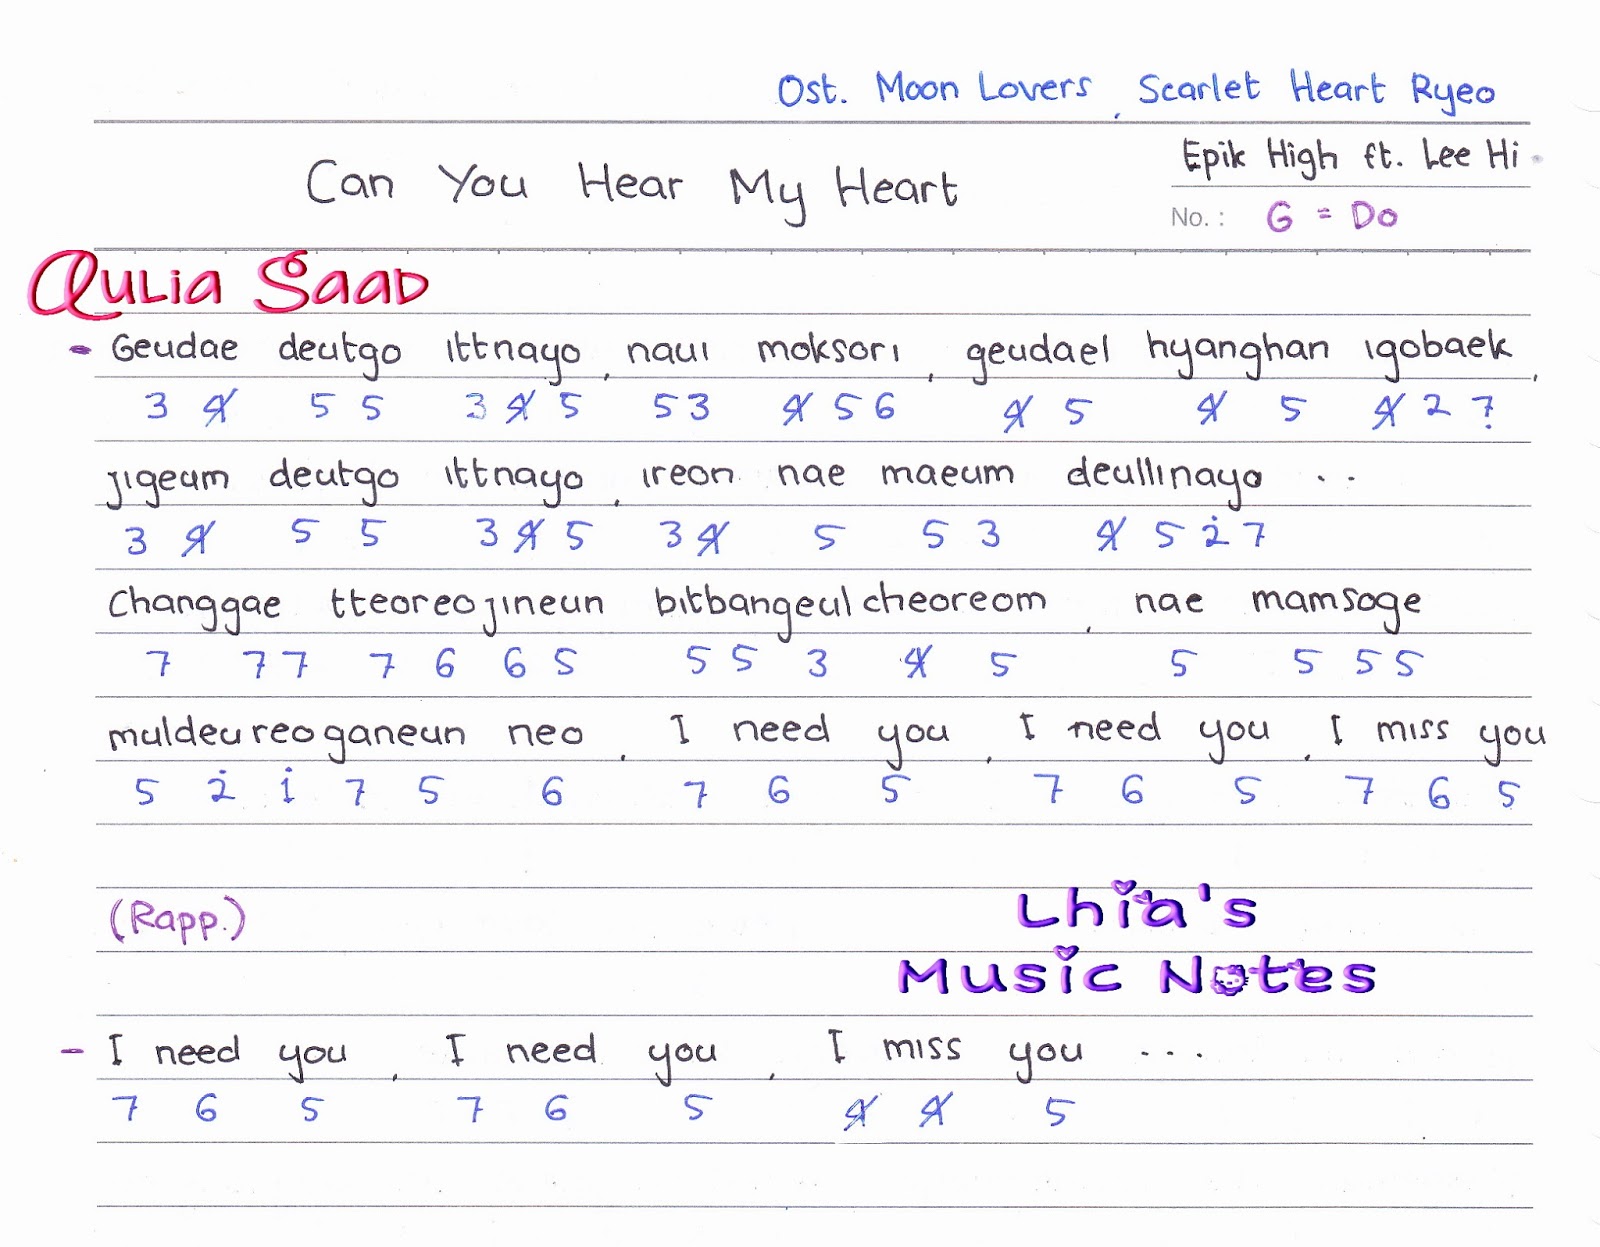 Ost. Moon Lovers, Scarlet Heart Ryeo
Can You Hear My Heart
Epik High ft. Lee Hi
No. : G = Do
Qulia Saad
- Geudae deutgo ittnayo, naui moksori, geudael hyanghan igobaek,
3 4̸ 5 5 3 4̸ 5 5 3 4̸ 5 6 4̸ 5 4̸ 5 4̸ 2 7̣
jigeum deutgo ittnayo, ireon nae maeum deullinayo ..
3 4̸ 5 5 3 4̸ 5 3 4̸ 5 5 3 4̸ 5 2̇ 7
Changgae tteoreojineun bitbangeul cheoreom, nae mamsoge
7 7 7 7 6 6 5 5 5 3 4̸ 5 5 5 5 5
muldeureoganeun neo, I need you, I need you, I miss you
5 2̇ 1̇ 7 5 6 7 6 5 7 6 5 7 6 5
(Rapp.)
Lhia's
Music Notes
- I need you, I need you, I miss you ...
7 6 5 7 6 5 4̸ 4̸ 5